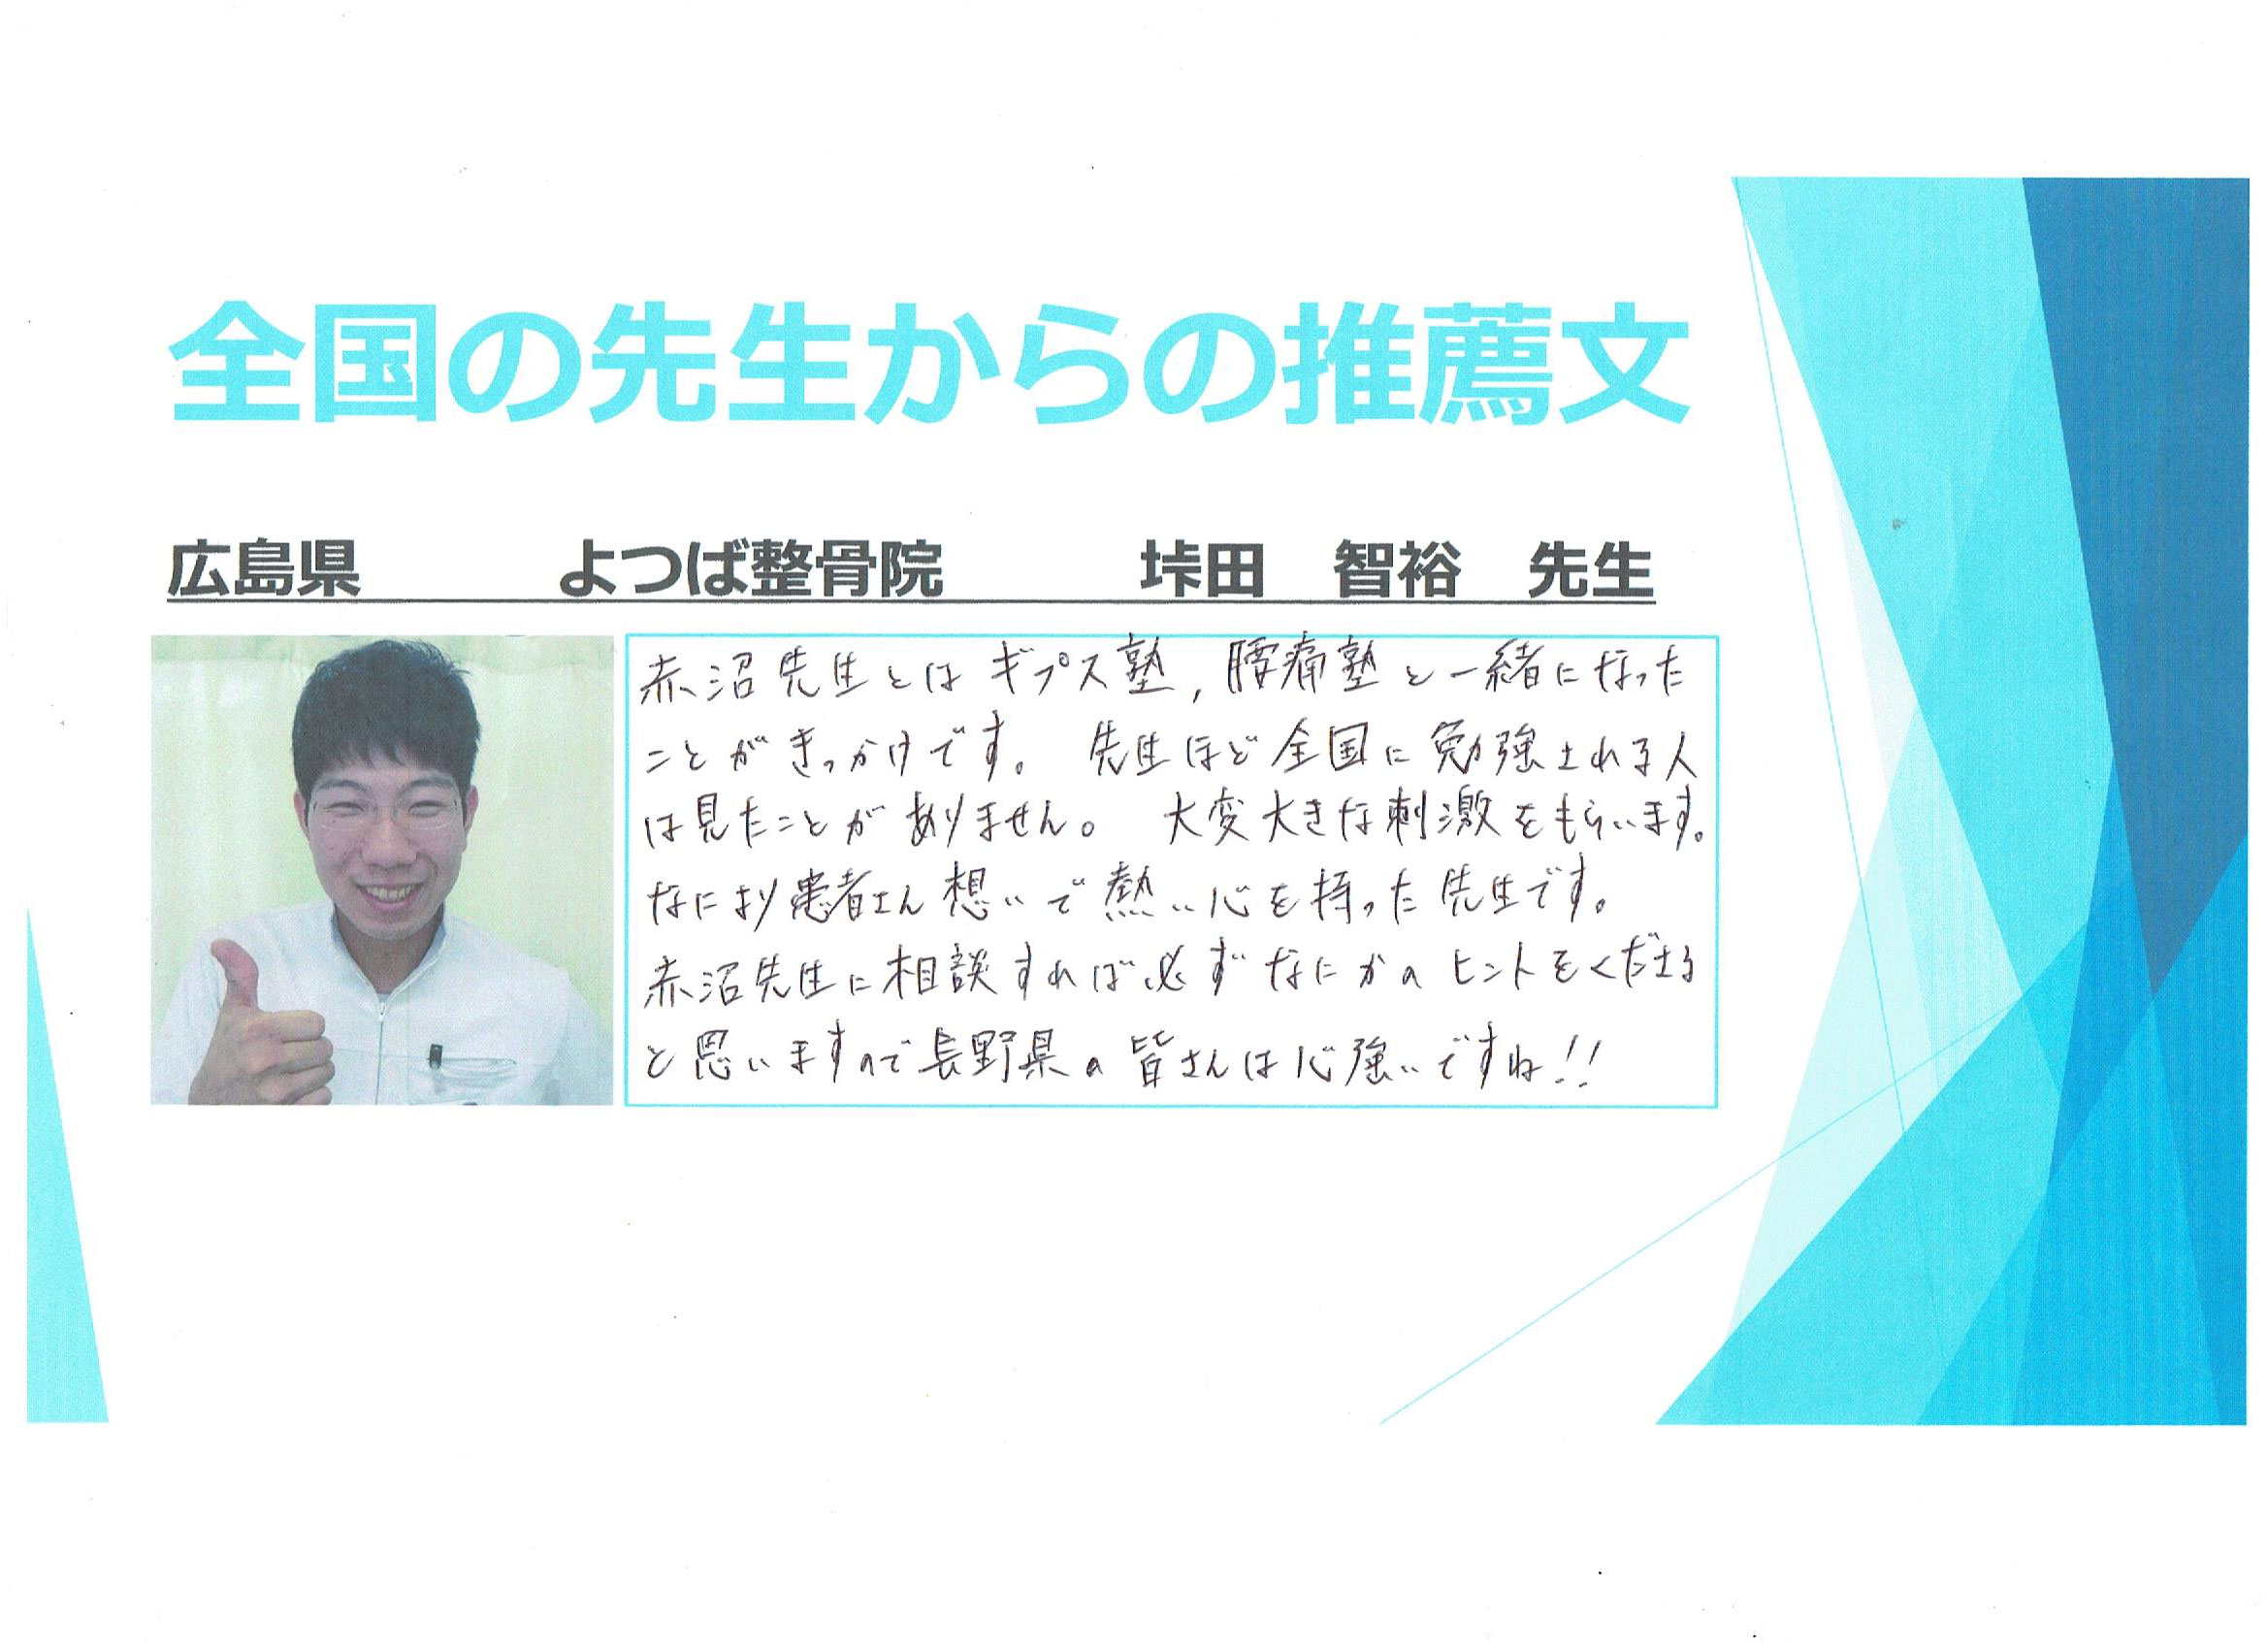 全国の先生からの推薦文
広島県　よつば整骨院　垰田　智裕　先生
赤沼先生とはギプス塾,腰痛塾と一緒になった
ことがきっかけです。 先生ほど全国に勉強される人
は見たことがありません。 大変大きな刺激をもらいます。
なにより患者さん想いで熱い心を持った先生です。
赤沼先生に相談すれば必ずなにかのヒントをくださる
と思いますので長野県の皆さんは心強いですね!!